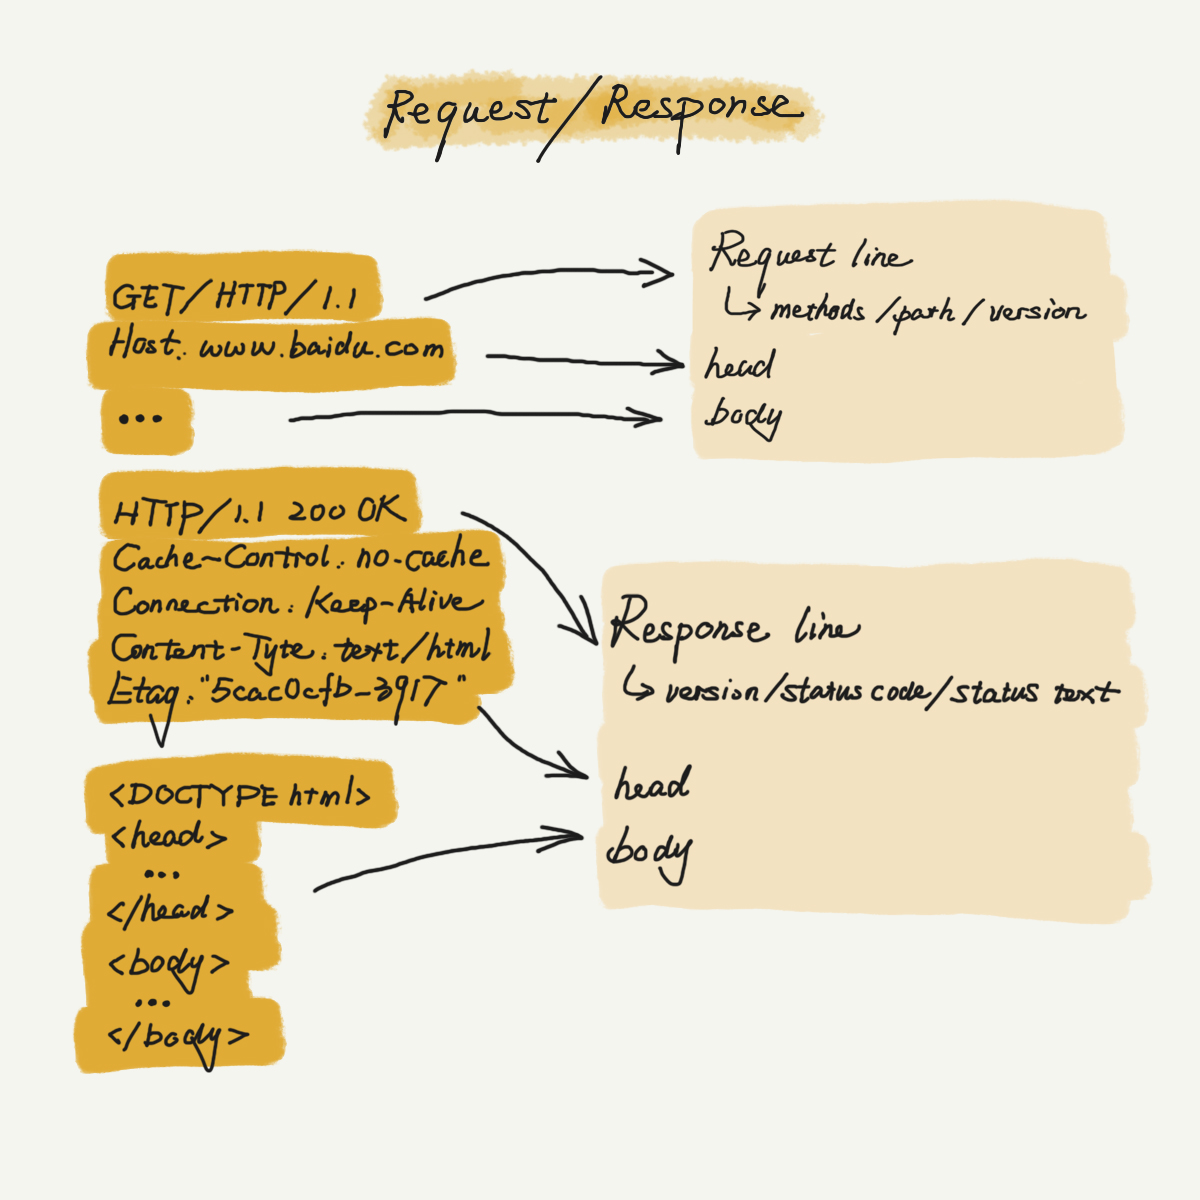 Request/Response
GET/HTTP/1.1
Host: www.baidu.com
...
Request line
methods/path/version
head
body
HTTP/1.1 200 OK
Cache-Control: no-cache
Connection: Keep-Alive
Content-Tyte: text/html
Etag: "5cac0cfb-3917"
<DOCTYPE html>
<head>
...
</head>
<body>
...
</body>
Response line
version/status code/status text
head
body